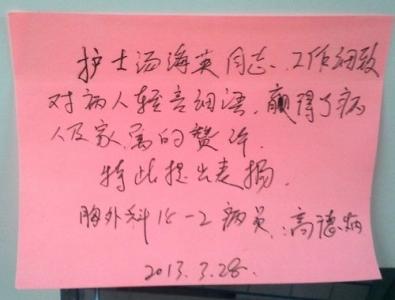 护士汤海英同志、工作细致
对病人轻言细语，赢得了病
人及家属的赞许.
特此提出表扬.
胸外科15-2病员:高德炳
2013.3.28.